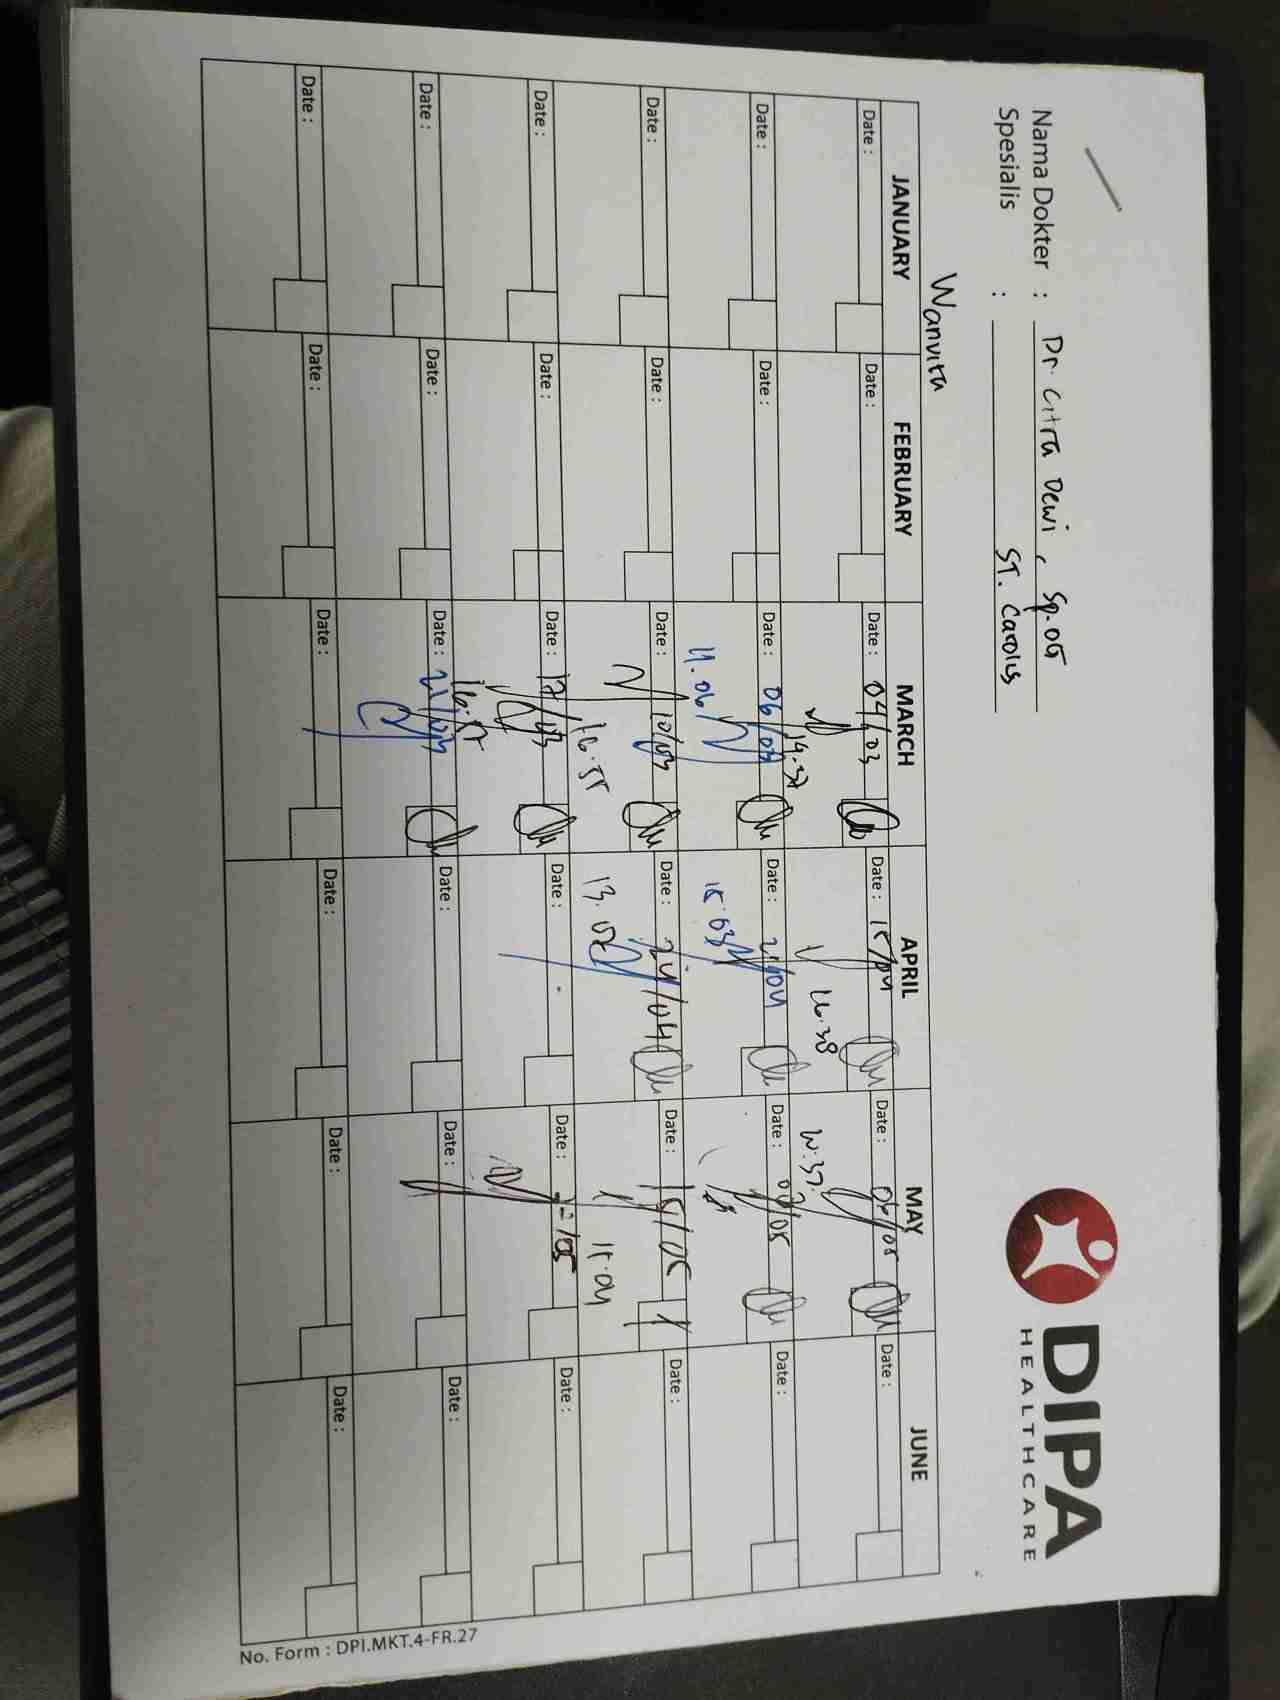 Nama Dokter : Dr. Citra Dewi, Sp.OG
Spesialis : ST. Carolus
DIPA
HEALTHCARE
Wanvita
JANUARY FEBRUARY MARCH APRIL MAY JUNE
Date : Date : Date : 04/03 Date : 15/04 Date : 06/05 Date :
14.37 16.38
Date : Date : Date : 06/03 Date : 21/04 Date : Date :
11.06 15.03
Date : Date : Date : 10/03 Date : 24/04 Date : 15/05 Date :
16.55 13.02 15.04
Date : Date : Date : 17/03 Date : Date : Date :
16.57
Date : Date : Date : 21/03 Date : Date : Date :
Date : Date : Date : Date : Date : Date :
No. Form : DPI.MKT.4-FR.27